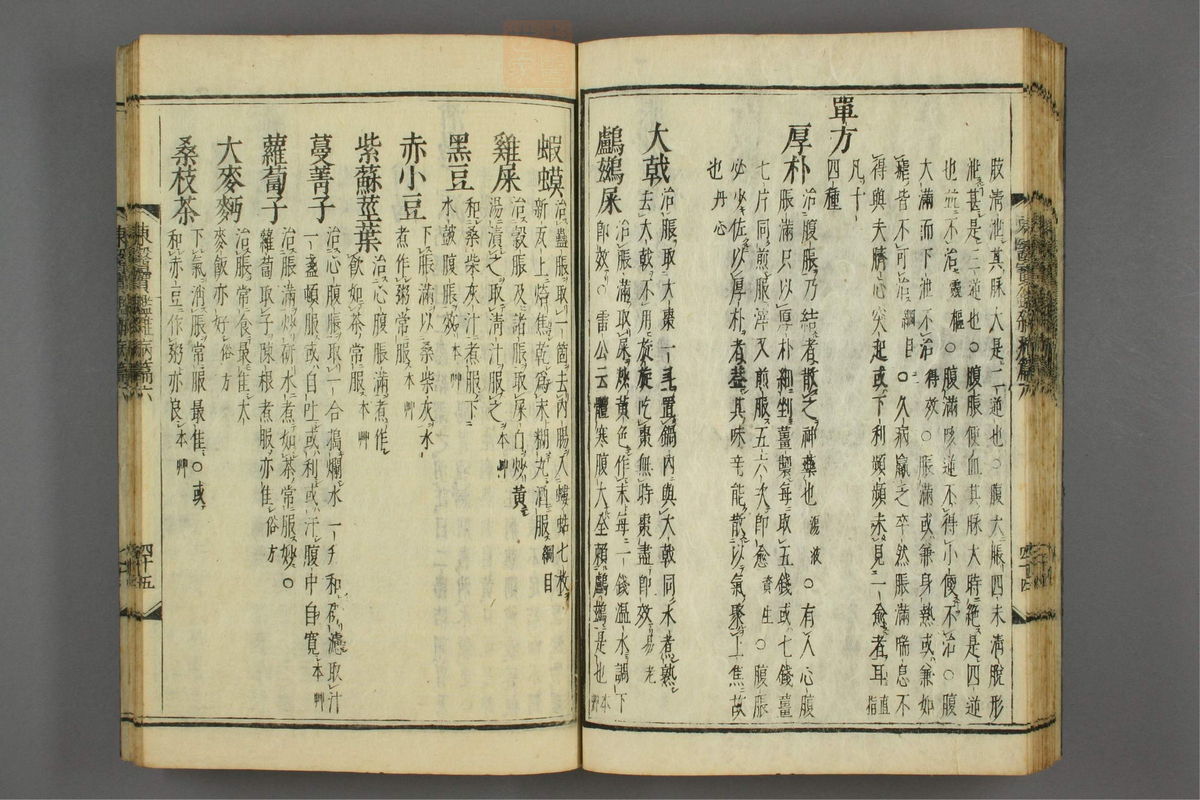 肢淸泄其脉大是二逆也○腹大脹四末淸脫形
泄甚是三逆也○腹脹便血其脉大時絕是四逆
也並不治靈樞○腹滿咳逆不得小便不治○腹
大滿而下泄不治得效○脹滿或兼身熱或兼如
瘧皆不可治綱目○久病羸乏卒然脹滿喘息不
得與夫臍心突起或下利頻頻未見一愈者耳直指
單方
凡十
四種
厚朴
治腹脹乃結者散之神藥也湯液○有人心腹
脹滿只以厚朴細剉薑製每取五錢或七錢薑
七片同煎服滓又煎服五六次卽愈資生○腹脹
必少佐以厚朴者盖其味辛能散以氣聚上焦故
也丹心
大戟
治脹取大棗一斗置鍋內與大戟同水煮熟
去大戟不用旋旋吃棗無時棗盡卽效易老
鸕鷀屎
治脹滿取屎炒黃色作末每一錢溫水調下
卽效○雷公云體寒腹大全賴鸕鷀是也本草
蝦蟆
治蠱脹取一箇去內腸入螻蛄七枚
新瓦上焙焦乾爲末糊丸酒服綱目
雞屎
治穀脹及諸脹取屎白炒黃
湯漬之取淸汁服之本草
黑豆
和桑柴灰汁煮服下
水鼓腹脹效本草
赤小豆
下脹滿以桑柴灰水
煮作粥常服本草
紫蘇莖葉
治心腹脹滿煮作
飮如茶常服本草
蔓菁子
治心腹脹取一合搗爛水一升和硏濾取汁
一盞頓服或自吐或利或汗腹中自寬本草
蘿蔔子
治脹滿炒硏水煮如茶常服妙○
蘿蔔取子陳根煮服亦佳俗方
大麥麪
治脹常食最佳大
麥飯亦好俗方
桑枝茶
下氣消脹常服最佳○或
和赤豆作粥亦良本草
東醫寶鑑雜病篇六
四十五